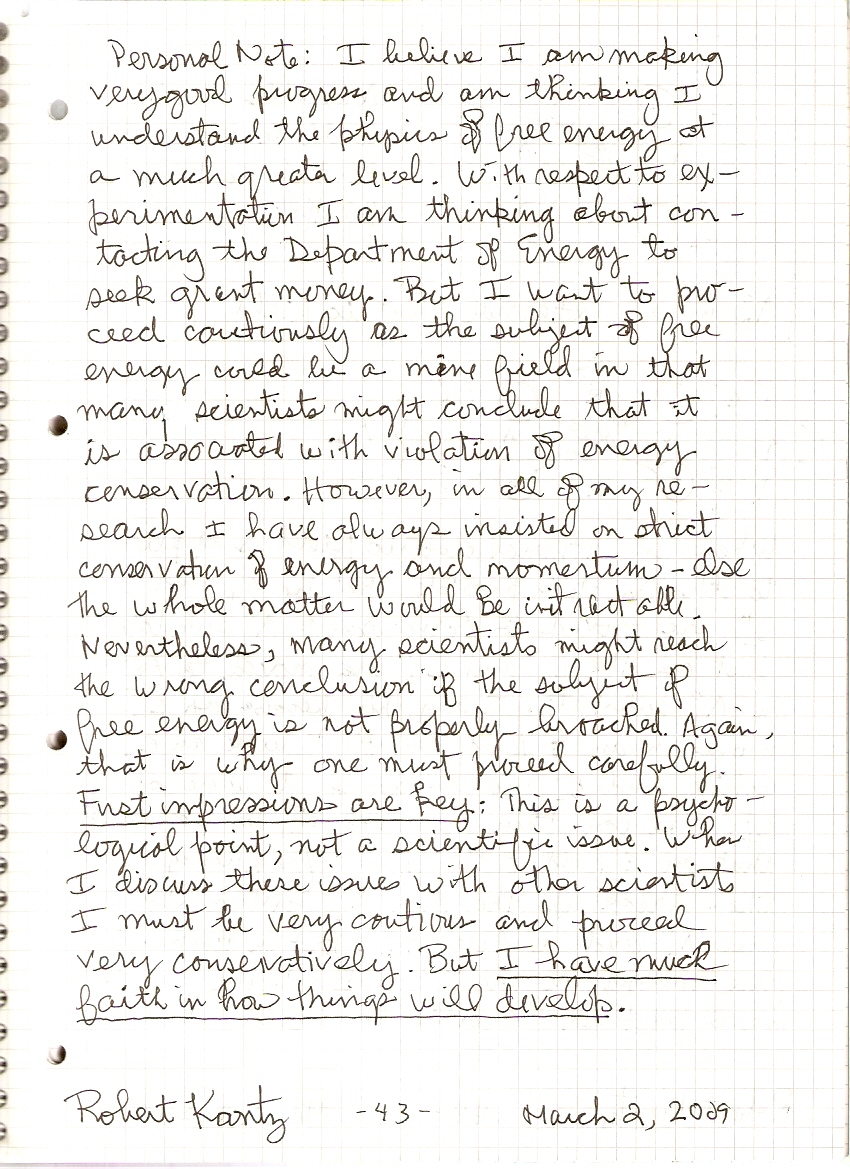 Personal Note: I believe I am making
very good progress and am thinking I
understand the physics of free energy at
a much greater level. With respect to ex-
perimentation I am thinking about con-
tacting the Department of Energy to
seek grant money. But I want to pro-
ceed cautiously as the subject of free
energy could be a mine field in that
many scientists might conclude that it
is associated with violation of energy
conservation. However, in all of my re-
search I have always insisted on strict
conservation of energy and momentum - else
the whole matter would be intractable.
Nevertheless, many scientists might reach
the wrong conclusion if the subject of
free energy is not properly broached. Again,
that is why one must proceed carefully.
First impressions are key: This is a psycho-
logical point, not a scientific issue. When
I discuss these issues with other scientists
I must be very cautious and proceed
very conservatively. But I have much
faith in how things will develop.
Robert Kantz -43- March 2, 2009